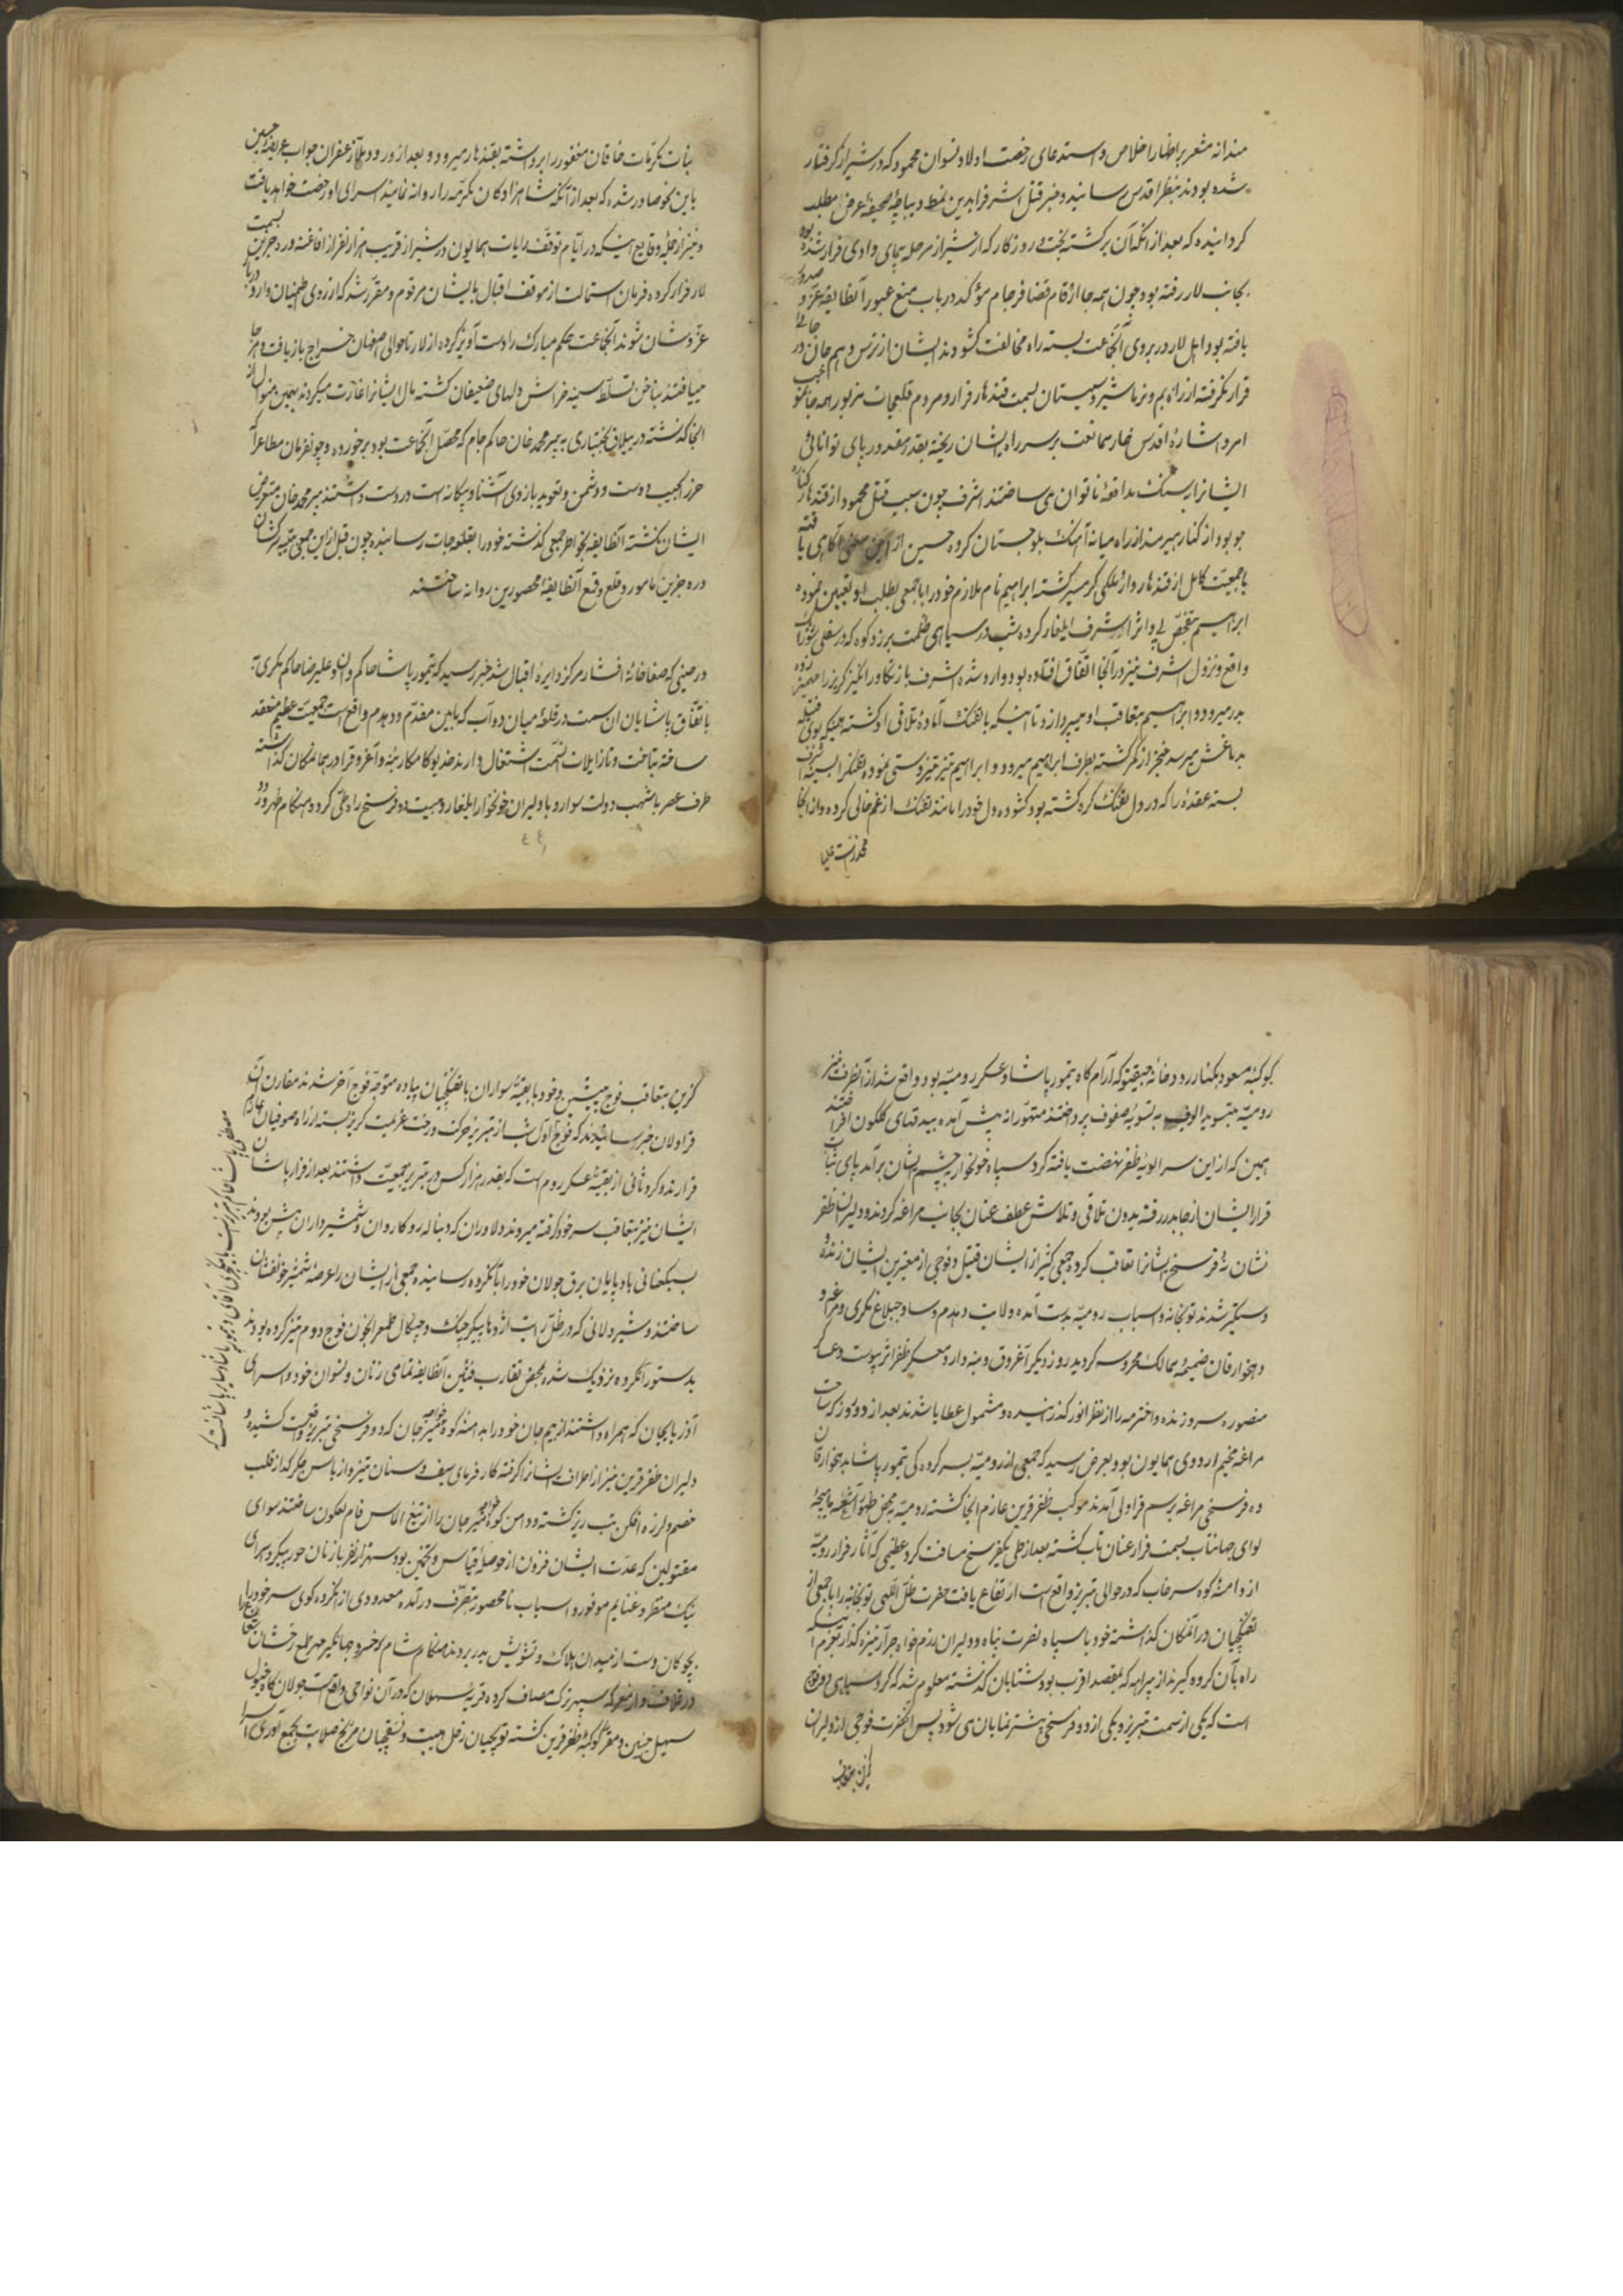 مندانه مشعر بر اظهار اخلاص و استدعای رخصت اولاد و نسوان محمود که در شیراز گرفتار
شده بودند بنظر اقدس رسانیده و خبر قتل اشرف را بدین نمط دیباچهٔ صحیفهٔ عرض مطلب
گردانیده که بعد از آنکه آن برگشته بخت روزگار که از شیراز مرحله پیمای وادی فرار شده بود
بجانب لار رفته بود چون همه جا ارقام قضا فرجام مؤکد در باب منع عبور آنطایفه عز صدور
یافته بود اهل لار در بروی آنجماعت بسته راه مخالفت گشودند ایشان از ترس و بیم جان در جائی
قرار نگرفته از راه بم و نرماشیر و سیستان بسمت قندهار فرار و مردم قلعجات مزبور همه جا
امر و اشارهٔ اقدس خار ممانعت بر سر راه ایشان ریخته بقدر مقدور پای توانائی
ایشانرا بسنگ مدافعه ناتوان می ساختند اشرف چون سبب قتل محمود از قندهار کناره
جو بود از کنار هیرمند از راه میانه آهنگ بلوچستان کرده حسین از این معنی آگاهی یافته
با جمعیت کامل از قندهار وارد ملکی گرمسیر گشته ابراهیم نام ملازم خود را با جمعی بطلب او تعیین نموده
ابراهیم بتفحص پی و اثر اشرف ایلغار کرده شب در سیاهی ظلمت بر زردکوه که در سفلی شوراب
واقع و نزول اشرف نیز در آنجا اتفاق افتاده بود وارد شده اشرف بازتکاور انگیز گریز را مهمیز زده
بدر میرود و ابراهیم بتعاقب او میپردازد تا اینکه با تفنگ آمادهٔ تلاقی او گشته همینکه بوی فتیله
بدماغش میرسد خنجر از کمر کشیده بطرف ابراهیم میرود و ابراهیم نیز تیزدستی نموده تفنگ را بسینهٔ اشرف
بسته عقده را که در دل تفنگ گره گشته بود گشوده دل خود را مانند تفنگ از غم خالی کرده و از آنجا
بنات مکرمات خاقان مغفور را برداشته بقندهار میرود و بعد از ورود ملا زعفران جواب عریضهٔ حسین
باین نحو صادر شده که بعد از آنکه شاهزادگان مکرمه را روانه نمایند اسرای او رخصت خواهد یافت
و نیز از جملهٔ وقایع اینکه در ایام توقف رایات همایون در شیراز قریب هزار نفر از افاغنهٔ دره جزین بسمت
لار فرار کرده فرمان استمالت از موقف اقبال بایشان مرقوم و مقرر شد که از روی اطمینان وارد دربار
عز و شان شوند آنجماعت حکم مبارک را دست آویز کرده از لار تا حوالی اصفهان خراج بازیافت و هر جا
مییافتند بناخن تسلط سینه خراش دلهای ضعیفان گشته مال ایشانرا غارت میکردند بهمین منوال از
آنجا گذشته در ییلاق بختیاری به پیر محمد خان حاکم جام که محصل آنجماعت بود برخورده و چون فرمان مطاع را که
حرز الجیب دوست و دشمن و تعویذ بازوی آشنا و بیگانه است در دست داشتند پیر محمد خان متعرض
ایشان نگشته آنطایفه بخواطر جمعی گذشته خود را بقلعجات رسانیده چون قبل از این جمعی بتنبیه سرکشان
دره جزین مامور و قلع و قمع آنطایفهٔ محصورین روانه ساختند
در حینی که صفاخانهٔ افشار مرکز دایرهٔ اقبال شد خبر رسید که تیمور پاشا حاکم وان و علیرضا حاکم مکری
باتفاق پاشایان آن سمت در قلعهٔ میان دوآب که مابین مقدم و دمدم واقعست جمعیت عظیم منعقد
ساخته بتاخت و تاز ایلات آنسمت اشتغال دارند خدیو کامکار بنه و آغروق را در همانمکان گذاشته
طرف عصر باشهب دولت سوار و با دلیران خونخوار ایلغار و بیست و دو فرسخ راه طی کرده هنگام ظهر ورود
کوکبهٔ مسعود بکنار رودخانهٔ جیقتو که آرامگاه تیمور پاشا و عسکر رومیه بود واقع شد از آنطرف نیز
رومیه بتسویهٔ صفوف پرداختند متهورانه پیش آمده بیدقهای گلگون افراختند
همین که از این سر الویهٔ ظفر نهضت یافته گرد سپاه خونخوار بچشم ایشان برآمد پای ثبات
قرار ایشان از جا بدر رفته بدون تلاقی و تلاش عطف عنان بجانب مراغه کردند و دلیران ظفر
نشان نه فرسخ ایشانرا تعاقب کرده جمعی کثیر از ایشان قتیل و فوجی از معتبرین ایشان زنده
دستگیر شدند توپخانه و اسباب رومیه بدست آمده ولایت دمدم و ساوجبلاغ مکری و مراغه و
دهخوارقان ضمیمهٔ ممالک محروسه گردید روز دیگر آغروق و بنه وارد معسکر ظفر اثر پیوست و عساکر
منصوره سر و زنده و اخترمه را از نظر انور گذرانیده و مشمول عطایا شدند بعد از دو روز که ساحت
مراغه مخیم اردوی همایون بود بعرض رسید که جمعی از رومیه بسرکردگی تیمور پاشا بدهخوارقان
ده فرسخی مراغه برسم قراولی آمدند موکب ظفر قرین عازم آنجا گشته رومیه بمحض ظهور اشعهٔ ماهیچهٔ
لوای جهانتاب بسمت فرار عنان تاب گشته بعد از طی یکفرسخ مسافت گرد عظیمی که آثار فرار رومیه
از دامنهٔ کوه سرخاب که در حوالی تبریز واقعست ارتفاع یافت حضرت ظل اللهی توپخانه را با جمعی از
تفنگچیان در آنمکان گذاشته خود با سپاه نصرت پناه و دلیران رزم خواه جرار نیزه گذار بعزم اینکه
راه بآن گروه گیرند از بیراهه که بمقصد اقرب بود شتابان گذشته معلوم شد که گرد سیاهی دو فوج
است که یکی از سمت تبریز و یکی از دو فرسخی پیشتر نمایان می شود پس آنحضرت فوجی از دلیران
گزین بتعاقب
گزین بتعاقب فوج پیشین و خود با بقیهٔ سواران با تفنگچیان پیاده متوجه فوج آخر شدند مقارن آن
قراولان خبر رسانیدند که فوج اول شب از تبریز حرکت و رخت عزیمت گریز بسته از راه صوفیان عازم
فرارند و گروه ثانی از بقیهٔ عسکر روم است که بقدر هزار کس در تبریز جمعیت داشتند بعد از فرار پاشایان
ایشان نیز بتعاقب سر خود گرفته میروند دلاوران که دنباله رو کاروان و شمشیرداران پیش بودند
بسبکعنانی بادپایان برق جولان خود را بآنگروه رسانیده جمعی از ایشان را عرضهٔ شمشیر خونفشان
ساختند و شیردلانی که در ظل رایت اژدها پیکر چنگ و چنگال طمع را بخون فوج دوم تیز کرده بودند
بدستور بآنگروه نزدیک شده بمحض تقارب فئتین آنطایفه تمامی زنان و نسوان خود و اسرای
آذربایجان که همراه داشتند از بیم جان خود را بدامنهٔ کوه خواجه میرجان که دو فرسخی تبریز واقعست کشیده و
دلیران ظفر قرین نیز از اطراف ایشانرا گرفته کار فرمای سیف و سنان تیز و از باس جگرگداز قلب
خصم و لرزه افکن تب ریز گشته و دامن کوه خواجه میرجان را از تیغ الماس فام لعلگون ساختند سوای
مقتولین که عدت ایشان فزون از حوصلهٔ قیاس و تخمین بود سه هزار نفر با زنان حور پیکر و اسرای
نیک منظر و غنایم موفور و اسباب نامحصور بتصرف درآمده معدودی از آنگروه گوی سر خود را
بچوگان دست از میدان هلاک و تشویش بدر بردند هنگام شام که خسرو جهانگیر مهر تیغ رخشان شعاع را
در غلاف و از معرکه سپهر ترک مصاف کرده قریهٔ سهلان که در آن نواحی واقعست جولان گاه خیول
سهیل جبین و مقر کوکبهٔ ظفر قرین گشته توپچیان زحل هیبت و نسقچیان مریخ صلابت بجمع آوری اسرا